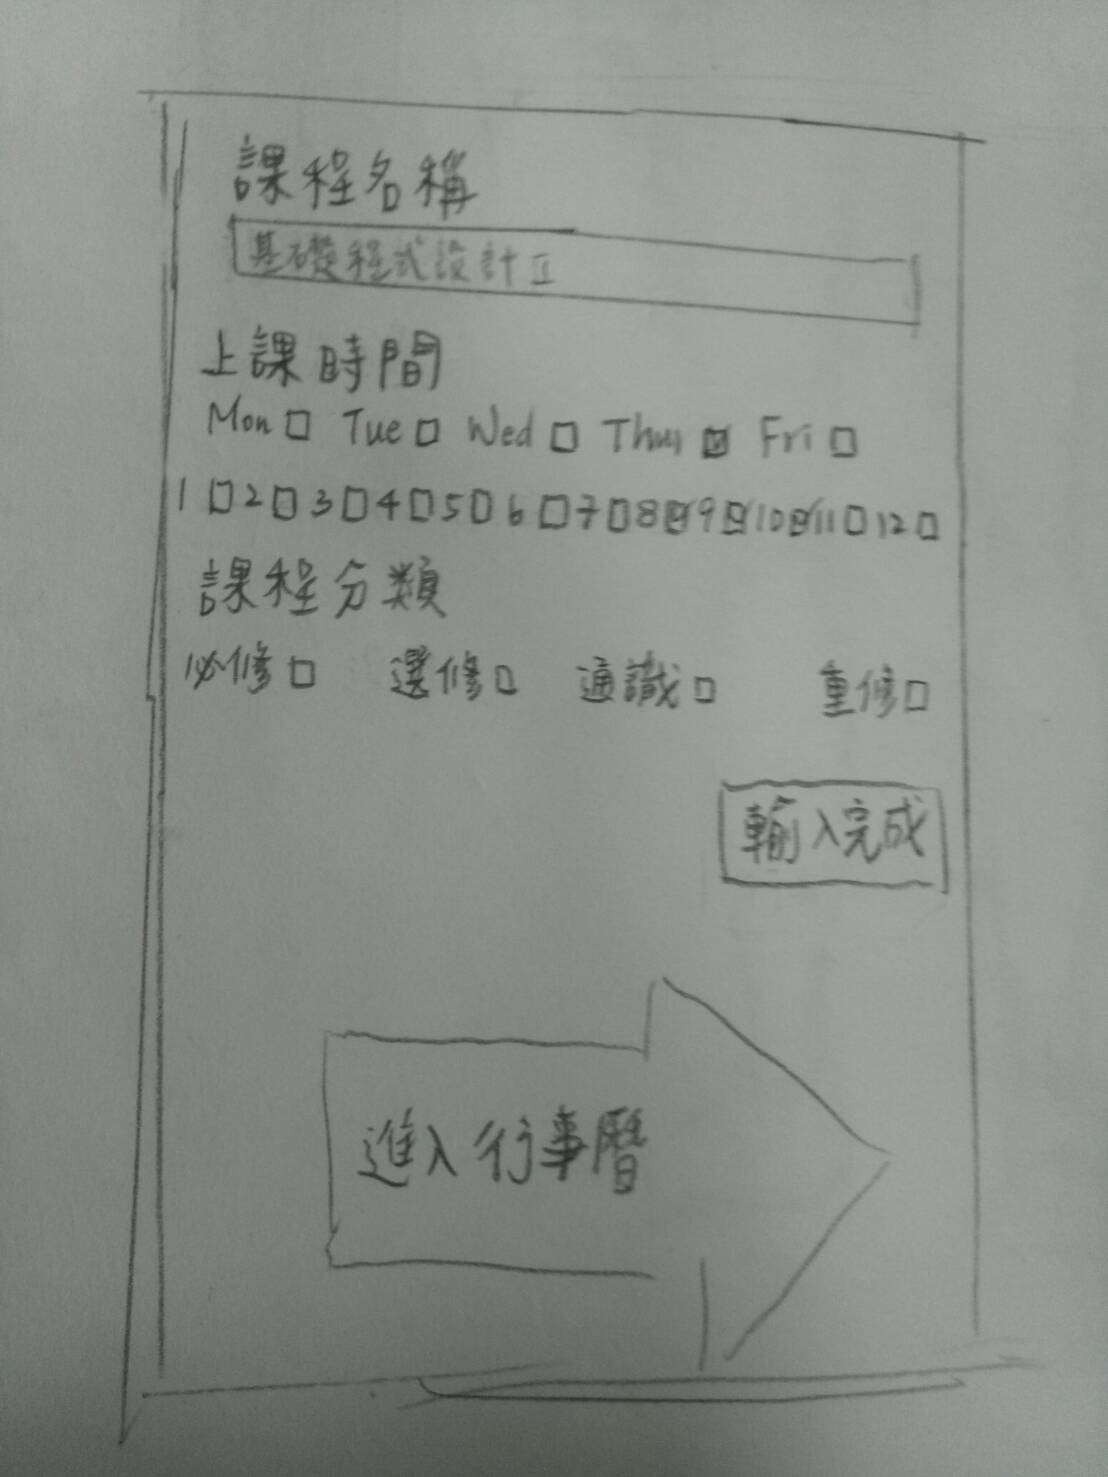 課程名稱
基礎程式設計 II
上課時間
Mon □ Tue □ Wed □ Thur ☑ Fri □
1 □ 2 □ 3 □ 4 □ 5 □ 6 □ 7 □ 8 ☑ 9 ☑ 10 ☑ 11 □ 12 □
課程分類
必修 □ 選修 □ 通識 □ 重修 □
輸入完成
進入行事曆